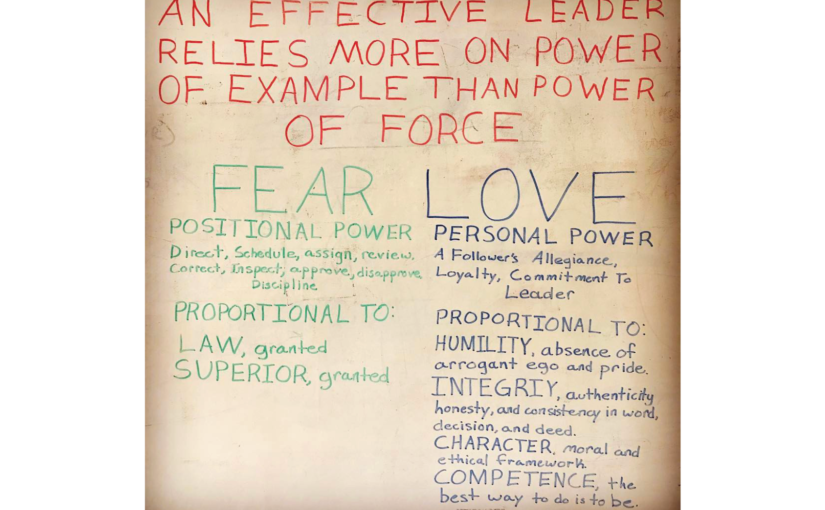 AN EFFECTIVE LEADER
RELIES MORE ON POWER
OF EXAMPLE THAN POWER
OF FORCE
FEAR
POSITIONAL POWER
Direct, Schedule, assign, review,
Correct, Inspect, approve, disapprove
Discipline
PROPORTIONAL TO:
LAW, granted
SUPERIOR, granted
LOVE
PERSONAL POWER
A Follower's Allegiance,
Loyalty, Commitment To
Leader
PROPORTIONAL TO:
HUMILITY, absence of
arrogant ego and pride.
INTEGRIY, authenticity
honesty, and consistency in word,
decision, and deed.
CHARACTER, moral and
ethical framework.
COMPETENCE, the
best way to do is to be.